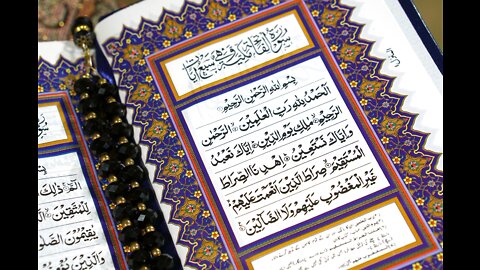 سُوْرَةُ الْفَاتِحَةِ مَكِّيَّةٌ وَّهِيَ سَبْعُ اٰيَاتٍ
بِسْمِ اللّٰهِ الرَّحْمٰنِ الرَّحِيْمِ
اَلْحَمْدُ لِلّٰهِ رَبِّ الْعٰلَمِيْنَ ۙ الرَّحْمٰنِ
الرَّحِيْمِ ۙ مٰلِكِ يَوْمِ الدِّيْنِ ؕ اِيَّاكَ نَعْبُدُ
وَاِيَّاكَ نَسْتَعِيْنُ ؕ اِهْدِنَا الصِّرَاطَ
الْمُسْتَقِيْمَ ۙ صِرَاطَ الَّذِيْنَ اَنْعَمْتَ عَلَيْهِمْ
غَيْرِ الْمَغْضُوْبِ عَلَيْهِمْ وَلَا الضَّآلِّيْنَ
الٓمّٓ ۚ ذٰلِكَ
لِّلْمُتَّقِيْنَ
يُقِيْمُوْنَ
وَالَّذِيْنَ